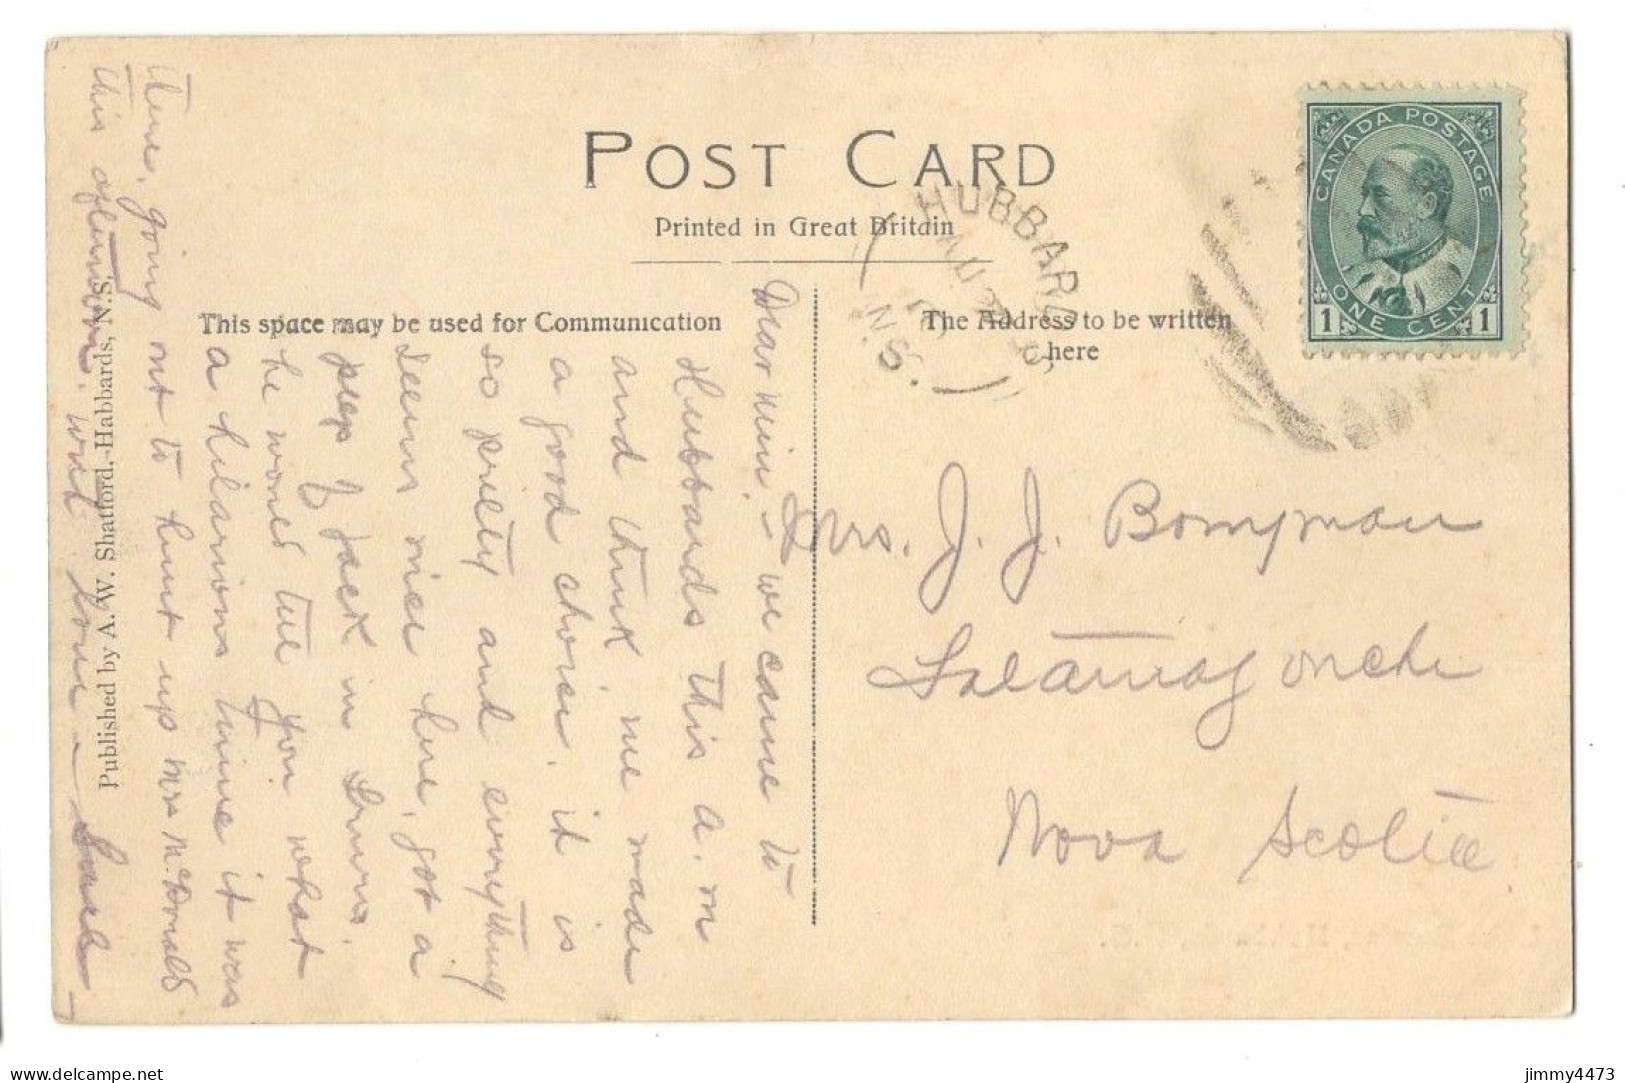 POST CARD
Printed in Great Britain
This space may be used for Communication
The Address to be written
here
CANADA POSTAGE
1 ONE CENT 1
HUBBARDS
AU
N.S.
Published by A. W. Shatford, Habbards, N.S.
Dear Min, – we came to
Hubbards this a.m
and think we made
a good choice, it is
so pretty and everything
seems nice here, got a
peep of Jack in
he wones tell you what
a hilarious time it was
there, going out to hunt up Mrs McDonald
this afternoon. with love –
Mrs. J. J.
Nova Scotia
delcampe.net
jimmy4473